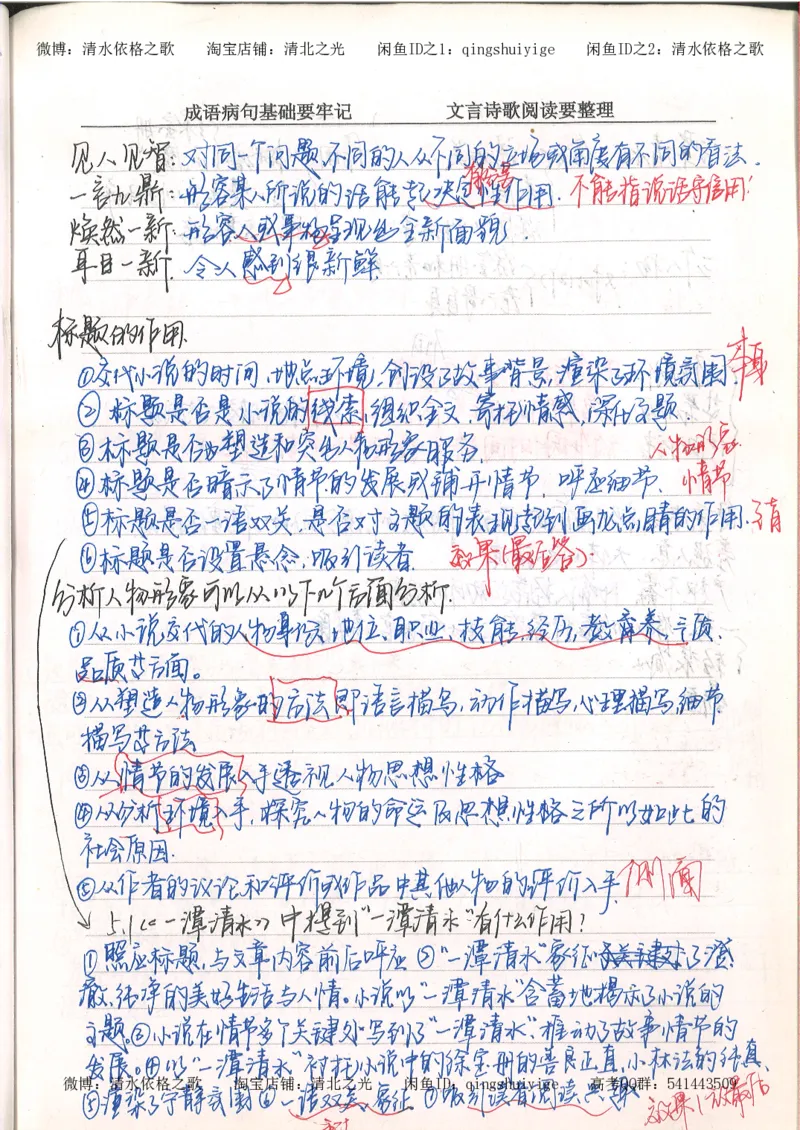 微博：清水依格之歌 淘宝店铺：清北之光 闲鱼ID之1：qingshuiyige 闲鱼ID之2：清水依格之歌
成语病句基础要牢记 文言诗歌阅读要整理
见人见智：对同一个问题，不同的人从不同的立场或角度有不同的看法。
一言九鼎：形容某人所说的话能起决定性作用。不能指说话守信用！
焕然一新：形容人或事物呈现出全新面貌。
耳目一新．令人感到很新鲜
标题的作用．
①交代小说的时间，地点环境，创设了故事背景，渲染了环境氛围．
②标题是否是小说的线索，组织全文，寄托情感，深化主题．
③标题是否为塑造和突出人物形象服务． 人物形象
④标题是否暗示了情节的发展或铺开情节，呼应细节． 情节
⑤标题是否一语双关，是否对主题的表现起到画龙点睛的作用．
⑥标题是否设置悬念，吸引读者． 效果（最后答）
分析人物形象可以从以下几个方面分析．
①从小说交代的人物身份，地位，职业，技能，经历，教育养，气质，
品质等方面。
②从塑造人物形象的方法即语言描写，动作描写，心理描写，细节
描写等方法
③从情节的发展入手透视人物思想性格
④从分析环境入手，探究人物的命运及思想性格之所以如此的
社会原因．
⑤从作者的议论和评价或作品中其他人物的评价入手． 侧面
5.1《一潭清水》中提到“一潭清水”有什么作用？
①照应标题，与文章内容前后呼应 ②“一潭清水”象征了澄
澈，纯净的美好生活与人情。小说以“一潭清水”含蓄地揭示了小说的
主题。③小说在情节多个关键处写到了“一潭清水”推动了故事情节的
发展。④以“一潭清水”衬托小说中的徐宝册的善良正直，小林法的纯真．
微博：清水依格之歌 淘宝店铺：清北之光 闲鱼ID之1：qingshuiyige 高考QQ群：541443509
⑤渲染了宁静氛围 ⑥一语双关，象征 ⑦吸引读者阅读兴趣